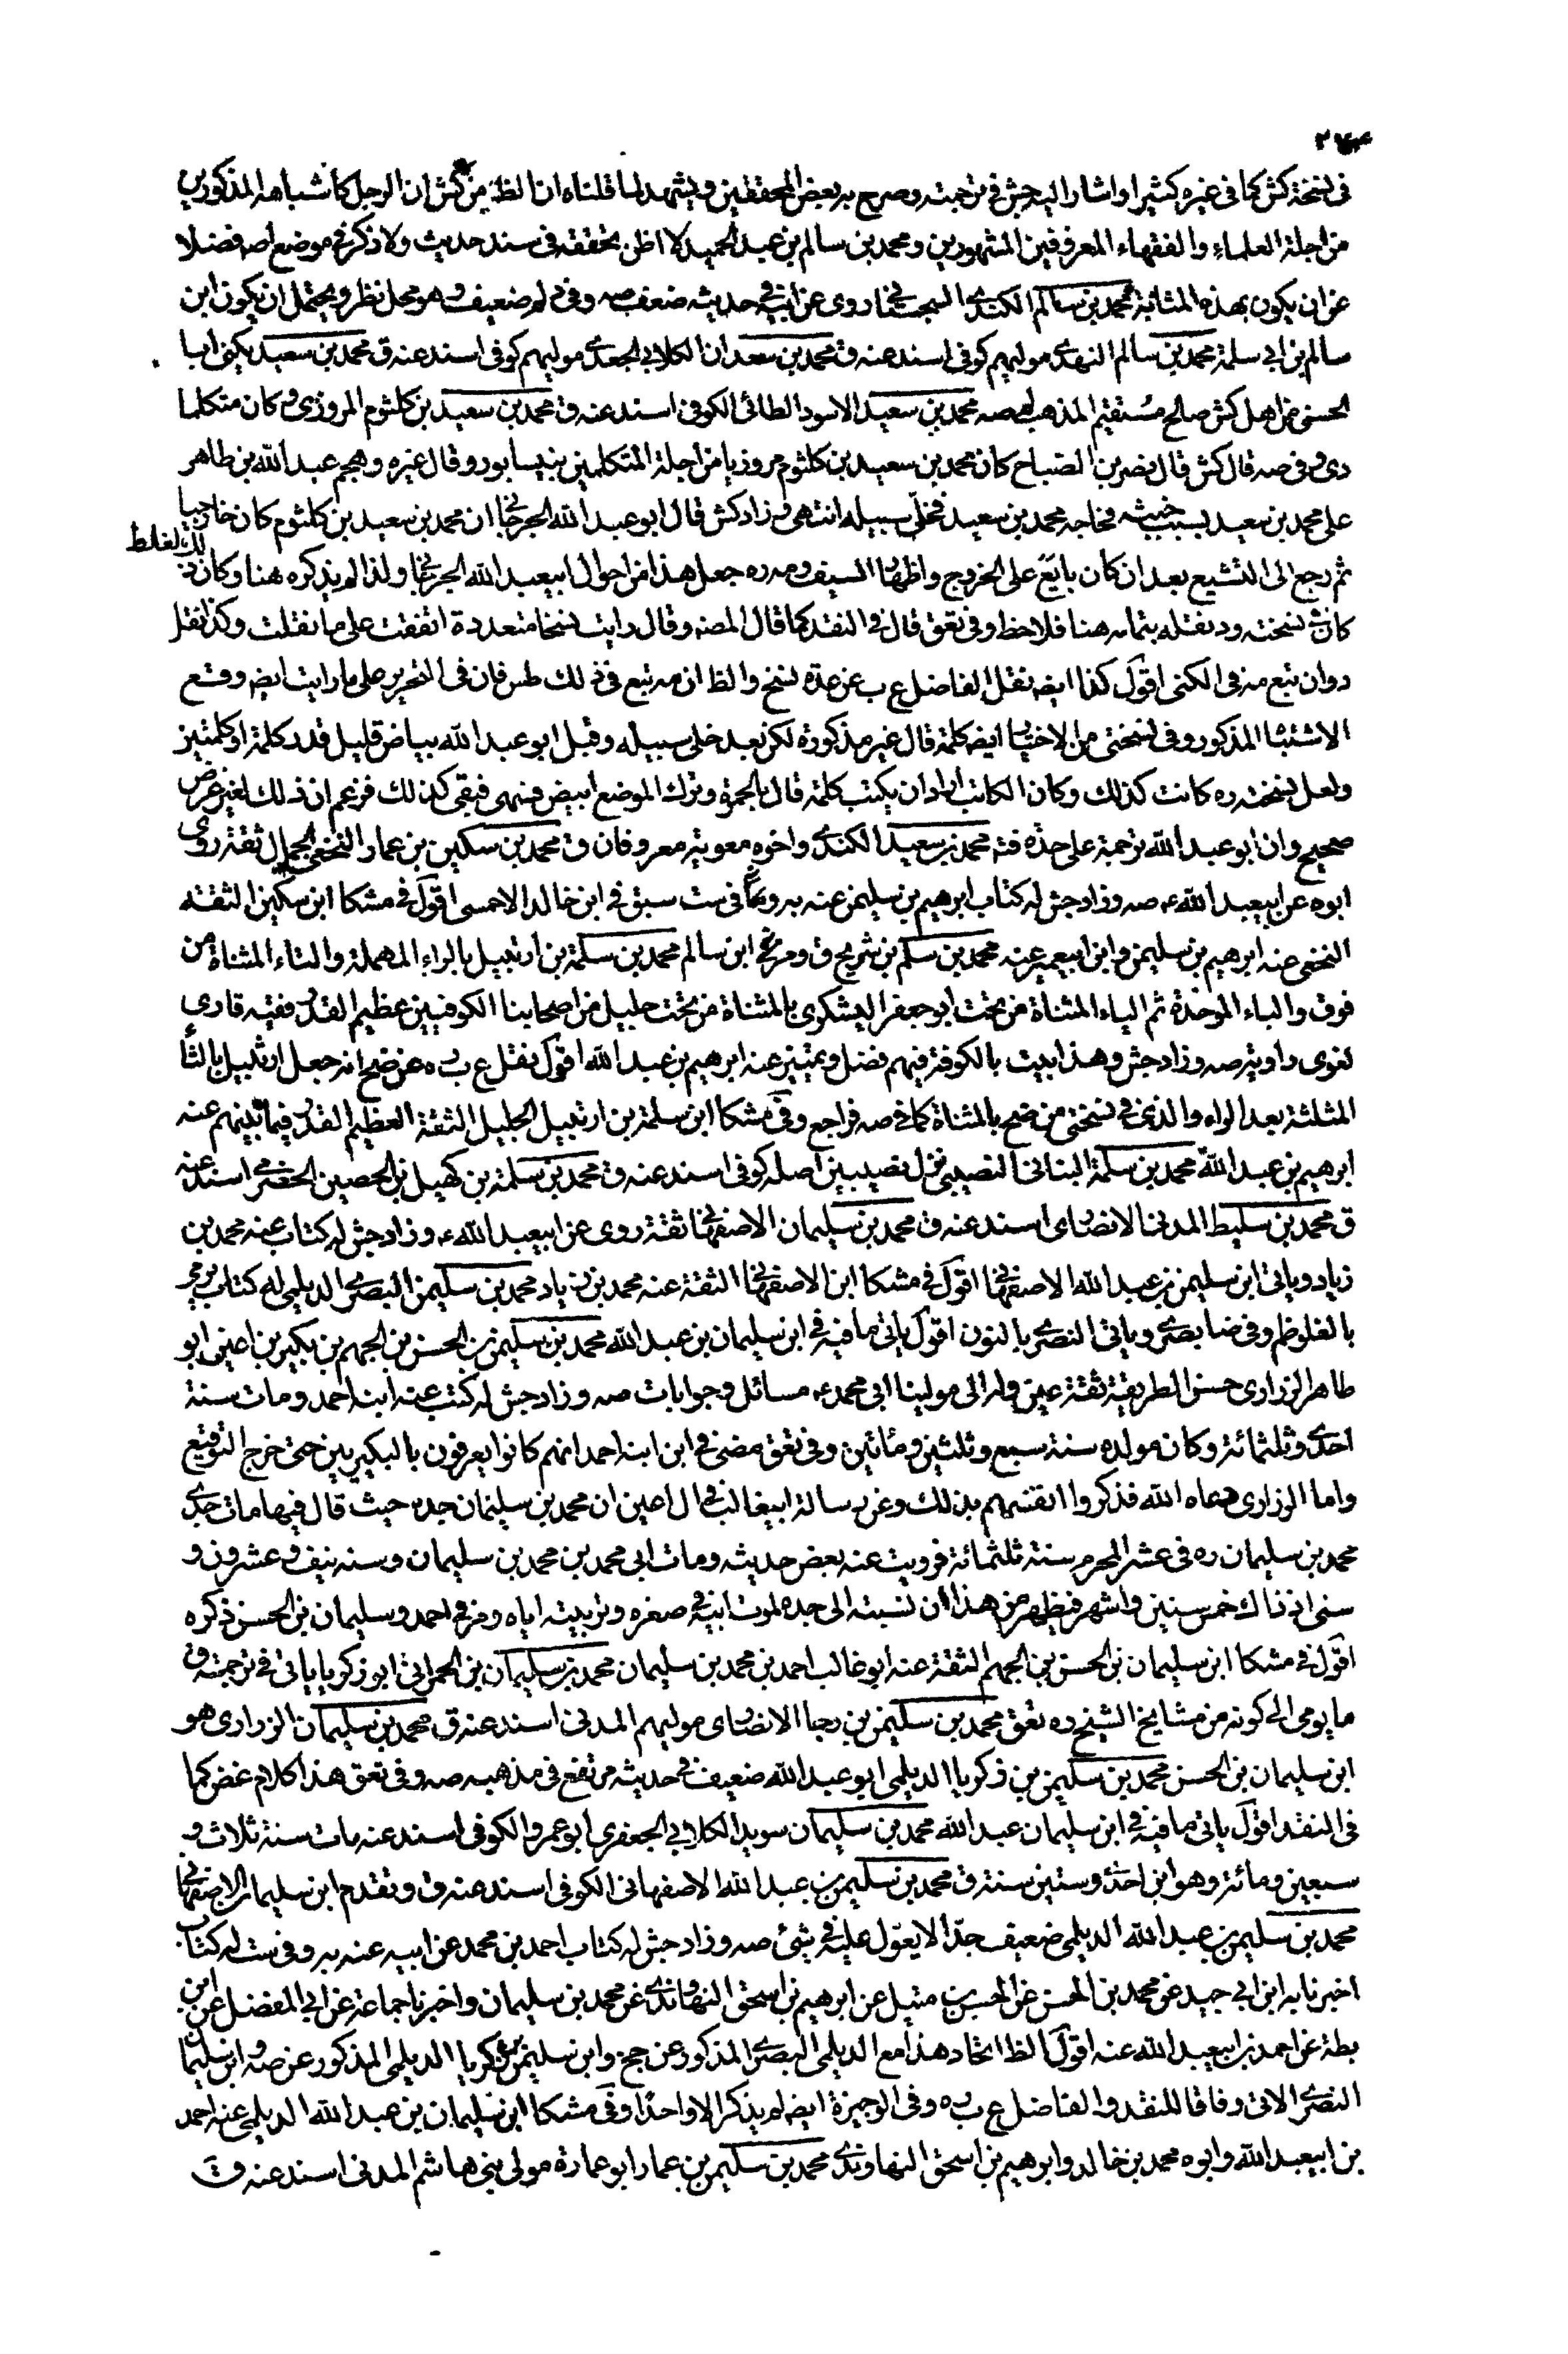 ٢٧٤
فى نسخة كش كما فى غيره كثيرا واشار اليه جش فى ترجمته وصرح به بعض المحققين ويشهد لما قلناه ان الظ من كش ان الرجل كأشباهه المذكورين
من اجلة العلماء والفقهاء المعروفين المشهورين ومحمد بن سالم بن عبد الحميد لا اظن تحققه فى سند حديث ولا ذكر فى موضع اصه فضلا
عن ان يكون بهذه المثابة محمد بن سالم الكندى السجستانى روى عن ابيه فى حديثه ضعف صه وفى ضعيف وهو محل نظر ويحتمل ان يكون ابن
سالم بن ابى سلمة محمد بن سالم النهدى موليهم كوفى اسند عنه ق محمد بن سعدان الكلابى الجعدى موليهم كوفى اسند عنه ق محمد بن سعيد يكنى ابا
الحسن من اهل كش صالح مستقيم المذهب لم صه محمد بن سعيد الاسود الطائى الكوفى اسند عنه ق محمد بن سعيد بن كلثوم المروزى وكان متكلما
دى وفى صه قال كش قال نصر بن الصباح كان محمد بن سعيد بن كلثوم مروزيا من أجلة المتكلمين بنيسابور وقال غيره وهجم عبد الله بن طاهر
على محمد بن سعيد بسبب خبثه فحاجه محمد بن سعيد فخلى سبيله انتهى وزاد كش قال ابو عبد الله الجرجانى ان محمد بن سعيد بن كلثوم كان خارجيا
ثم رجع الى التشيع بعد ان كان بايع على الخروج واظهار السيف ومه ره جعل هذا من احوال ابيعبد الله الجرجانى ولذا لم يذكره هنا وكان
لغلط
كان فى نسخته ود نقله بتمامه هنا فلاحظ وفى تعق قال فى النقد كما قال المصنه وقال رايت نسخا متعددة اتفقت على ما نقلت وكذا نقل
د وان تبع مه فى الكنى اقول كذا ايضه نقل الفاضل ع ب عن عدة نسخ والظ ان مه تبع فى ذلك طس فان فى التحرير على ما رايت ايضه وقع
الاشتباه المذكور وفى نسختى من الاختيار ايضه كلمة قال غير مذكورة لكن بعد خلى سبيله وقبل ابو عبد الله بياض قليل قدر كلمة او كلمتين
ولعل نسخته ره كانت كذلك وكان الكاتب اراد ان يكتب كلمة قال بالحمرة وترك الموضع ابيض فنسى فبقى كذلك فزعم ان ذلك لغير غرض
صحيح وان ابو عبد الله ترجمة على حدة فتد محمد بن سعيد الكندى واخوه معوية معروفان ق محمد بن سكين بن عمار النخعى الجمال ثقة روى
ابوه عن ابيعبد الله ع صه وزاد جش له كتاب ابرهيم بن سليمن عنه به وما فى ست سبق فى ابن خالد الاحمسى اقول فى مشكا ابن سكين الثقة
النخعى عنه ابرهيم بن سليمن وابن ابيعمير عنه محمد بن سلم بن شريح ق ومر فى ابن سالم محمد بن سلمة بن ارتبيل بالراء المهملة والتاء المثناة من
فوق والباء الموحدة ثم الياء المثناة من تحت ابو جعفر اليشكرى بالمثناة من تحت جليل من اصحابنا الكوفيين عظيم القدر فقيه قارى
لغوى راوية صه وزاد جش وهذا بيت بالكوفة فيهم فضل وتميز عنه ابرهيم بن عبد الله اقول نقل ع ب ره عن ضح انه جعل ارثبيل بالثاء
المثلثة بعد الراء والذى فى نسختى من ضح بالمثناة كما فى صه فراجع وفى مشكا ابن سلمة بن ارتبيل الجليل الثقة العظيم القدر فيما بينهم عنه
ابرهيم بن عبد الله محمد بن سلمة البنانى النصيبى نزل نصيبين اصله كوفى اسند عنه ق محمد بن سلمة بن كهيل بن الحصين الحضرمى اسند عنه
ق محمد بن سليط المدنى الانصارى اسند عنه ق محمد بن سليمان الاصفهانى ثقة روى عن ابيعبد الله ع وزاد جش له كتاب عنه محمد بن
زياد وياتى ابن سليمن بن عبد الله الاصفهانى اقول فى مشكا ابن الاصفهانى الثقة عنه محمد بن زياد محمد بن سليمن البصرى الديلمى له كتاب يرمى
بالغلو ظم وفى ضا بصرى وياتى النصرى بالنون اقول ياتى ما فيه فى ابن سليمان بن عبد الله محمد بن سليمن بن الحسن بن الجهم بن بكير بن اعين ابو
طاهر الزرارى حسن الطريقة ثقة عين وله الى مولينا ابى محمد ع مسائل وجوابات صه وزاد جش له كتب عنه ابنه احمد ومات سنة
احدى وثلثمائة وكان مولده سنة سبع وثلثين ومأتين وفى تعق مضى فى ابن ابنه احمد انهم كانوا يعرفون بالبكيريين حتى خرج التوقيع
واما الزرارى رعاه الله فذكروا انفسهم بذلك وعن رسالة ابيغالب فى ال اعين ان محمد بن سليمان جده حيث قال فيها مات جدى
محمد بن سليمان ره فى عشر المحرم سنة ثلثمائة فرويت عنه بعض حديثه ومات ابى محمد بن محمد بن سليمان وسنه نيف وعشرون و
سنى اذ ذاك خمس سنين واشهر فيظهر من هذا ان نسبته الى جده لموت ابيه فى صغره وتربيته اياه ومر فى احمد وسليمان بن الحسن ذكره
اقول فى مشكا ابن سليمان بن الحسن بن الجهم الثقة عنه ابو غالب احمد بن محمد بن سليمان محمد بن سليمان بن الحمرانى ابو زكريا ياتى فى ترجمته
ما يومى الى كونه من مشايخ الشيخ ره تعق محمد بن سليمن بن رجا الانصارى موليهم المدنى اسند عنه ق محمد بن سليمان الزرارى هو
ابن سليمان بن الحسن محمد بن سليمن بن زكريا الديلمى ابو عبد الله ضعيف فى حديثه مرتفع فى مذهبه صه وفى تعق هذا كلام غض كما
فى النقد اقول ياتى ما فيه فى ابن سليمان عبد الله محمد بن سليمان سويد الكلابى الجعفرى ابو عمرو الكوفى اسند عنه مات سنة ثلاث و
سبعين ومائة وهو ابن احدى وستين سنة ق محمد بن سليمن بن عبد الله الاصفهانى الكوفى اسند عنه ق وتقدم ابن سليمان الاصفهانى
محمد بن سليمن بن عبد الله الديلمى ضعيف جدا لا يعول عليه فى شئ صه وزاد جش له كتاب احمد بن محمد عن ابيه عنه به وفى ست له كتاب
اخبرنا به ابن ابى جيد عن محمد بن الحسن عن الحسن بن متيل عن ابرهيم بن اسحق النهاوندى عن محمد بن سليمان واخبرنا جماعة عن ابى المفضل عن ابن
بطة عن احمد بن ابيعبد الله عنه اقول الظ اتحاد هذا مع الديلمى البصرى المذكور عن جخ وابن سليمن بن زكريا الديلمى المذكور عن صه وابن سليمان
النصرى الاتى وفاقا للنقد والفاضل ع ب ره وفى الوجيزة ايضه لم يذكر الا واحدا وفى مشكا ابن سليمان بن عبد الله الديلمى عنه احمد
بن ابيعبد الله وابوه محمد بن خالد وابرهيم بن اسحق النهاوندى محمد بن سليمن بن عمار ابو عمارة مولى بنى هاشم المدنى اسند عنه ق